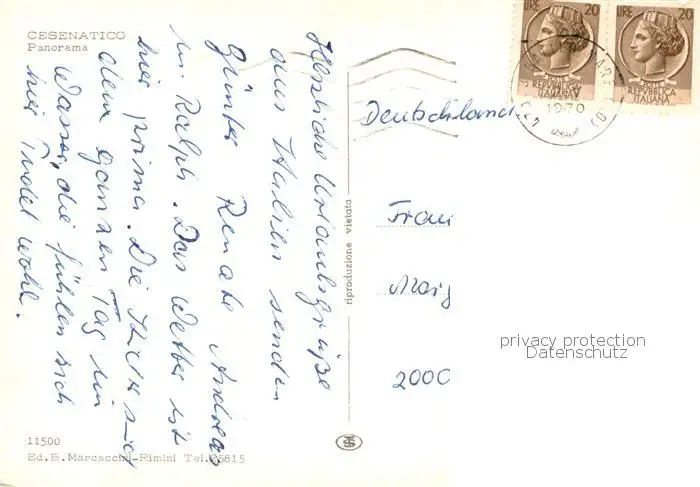 CESENATICO
Panorama
Herzliche Urlaubsgrüße
aus Italien senden
Günter Renate Andreas
u. Ralph. Das Wetter ist
hier prima. Die sind
dem ganzen Tag im
Wasser, die fühlen sich
hier sehr wohl.
11500
Ed. B. Marcacchi-Rimini Tel. 25815
riproduzione vietata
LIRE 20
REPVBBLICA
ITALIANA
LIRE 20
REPVBBLICA
ITALIANA
1970
Deutschland
Frau
2000
privacy protection
Datenschutz